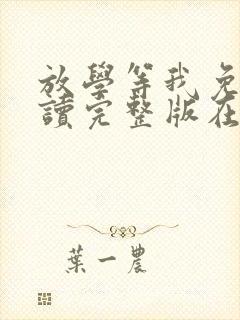 放學等我免
讀完整版在
葉一農